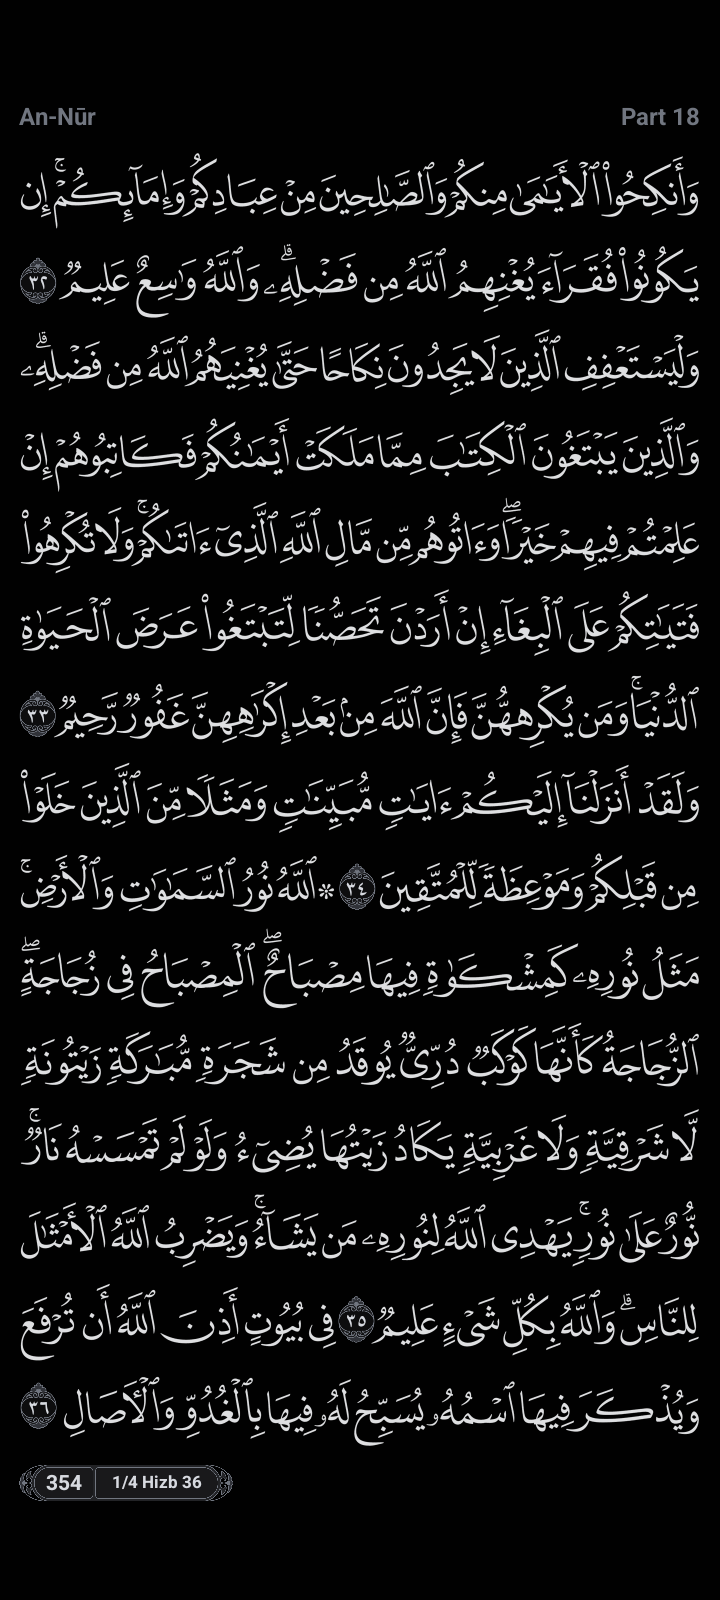 An-Nūr Part 18
وَأَنكِحُوا۟ ٱلْأَيَـٰمَىٰ مِنكُمْ وَٱلصَّـٰلِحِينَ مِنْ عِبَادِكُمْ وَإِمَآئِكُمْ ۚ إِن
يَكُونُوا۟ فُقَرَآءَ يُغْنِهِمُ ٱللَّهُ مِن فَضْلِهِۦ ۗ وَٱللَّهُ وَٰسِعٌ عَلِيمٌ ٣٢
وَلْيَسْتَعْفِفِ ٱلَّذِينَ لَا يَجِدُونَ نِكَاحًا حَتَّىٰ يُغْنِيَهُمُ ٱللَّهُ مِن فَضْلِهِۦ ۗ
وَٱلَّذِينَ يَبْتَغُونَ ٱلْكِتَـٰبَ مِمَّا مَلَكَتْ أَيْمَـٰنُكُمْ فَكَاتِبُوهُمْ إِنْ
عَلِمْتُمْ فِيهِمْ خَيْرًا ۖ وَءَاتُوهُم مِّن مَّالِ ٱللَّهِ ٱلَّذِىٓ ءَاتَىٰكُمْ ۚ وَلَا تُكْرِهُوا۟
فَتَيَـٰتِكُمْ عَلَى ٱلْبِغَآءِ إِنْ أَرَدْنَ تَحَصُّنًا لِّتَبْتَغُوا۟ عَرَضَ ٱلْحَيَوٰةِ
ٱلدُّنْيَا ۚ وَمَن يُكْرِههُّنَّ فَإِنَّ ٱللَّهَ مِنۢ بَعْدِ إِكْرَٰهِهِنَّ غَفُورٌ رَّحِيمٌ ٣٣
وَلَقَدْ أَنزَلْنَآ إِلَيْكُمْ ءَايَـٰتٍ مُّبَيِّنَـٰتٍ وَمَثَلًا مِّنَ ٱلَّذِينَ خَلَوْا۟
مِن قَبْلِكُمْ وَمَوْعِظَةً لِّلْمُتَّقِينَ ٣٤ ۞ ٱللَّهُ نُورُ ٱلسَّمَـٰوَٰتِ وَٱلْأَرْضِ ۚ
مَثَلُ نُورِهِۦ كَمِشْكَوٰةٍ فِيهَا مِصْبَاحٌ ۖ ٱلْمِصْبَاحُ فِى زُجَاجَةٍ ۖ
ٱلزُّجَاجَةُ كَأَنَّهَا كَوْكَبٌ دُرِّىٌّ يُوقَدُ مِن شَجَرَةٍ مُّبَـٰرَكَةٍ زَيْتُونَةٍ
لَّا شَرْقِيَّةٍ وَلَا غَرْبِيَّةٍ يَكَادُ زَيْتُهَا يُضِىٓءُ وَلَوْ لَمْ تَمْسَسْهُ نَارٌ ۚ
نُّورٌ عَلَىٰ نُورٍ ۗ يَهْدِى ٱللَّهُ لِنُورِهِۦ مَن يَشَآءُ ۚ وَيَضْرِبُ ٱللَّهُ ٱلْأَمْثَـٰلَ
لِلنَّاسِ ۗ وَٱللَّهُ بِكُلِّ شَىْءٍ عَلِيمٌ ٣٥ فِى بُيُوتٍ أَذِنَ ٱللَّهُ أَن تُرْفَعَ
وَيُذْكَرَ فِيهَا ٱسْمُهُۥ يُسَبِّحُ لَهُۥ فِيهَا بِٱلْغُدُوِّ وَٱلْـَٔاصَالِ ٣٦
354 1/4 Hizb 36